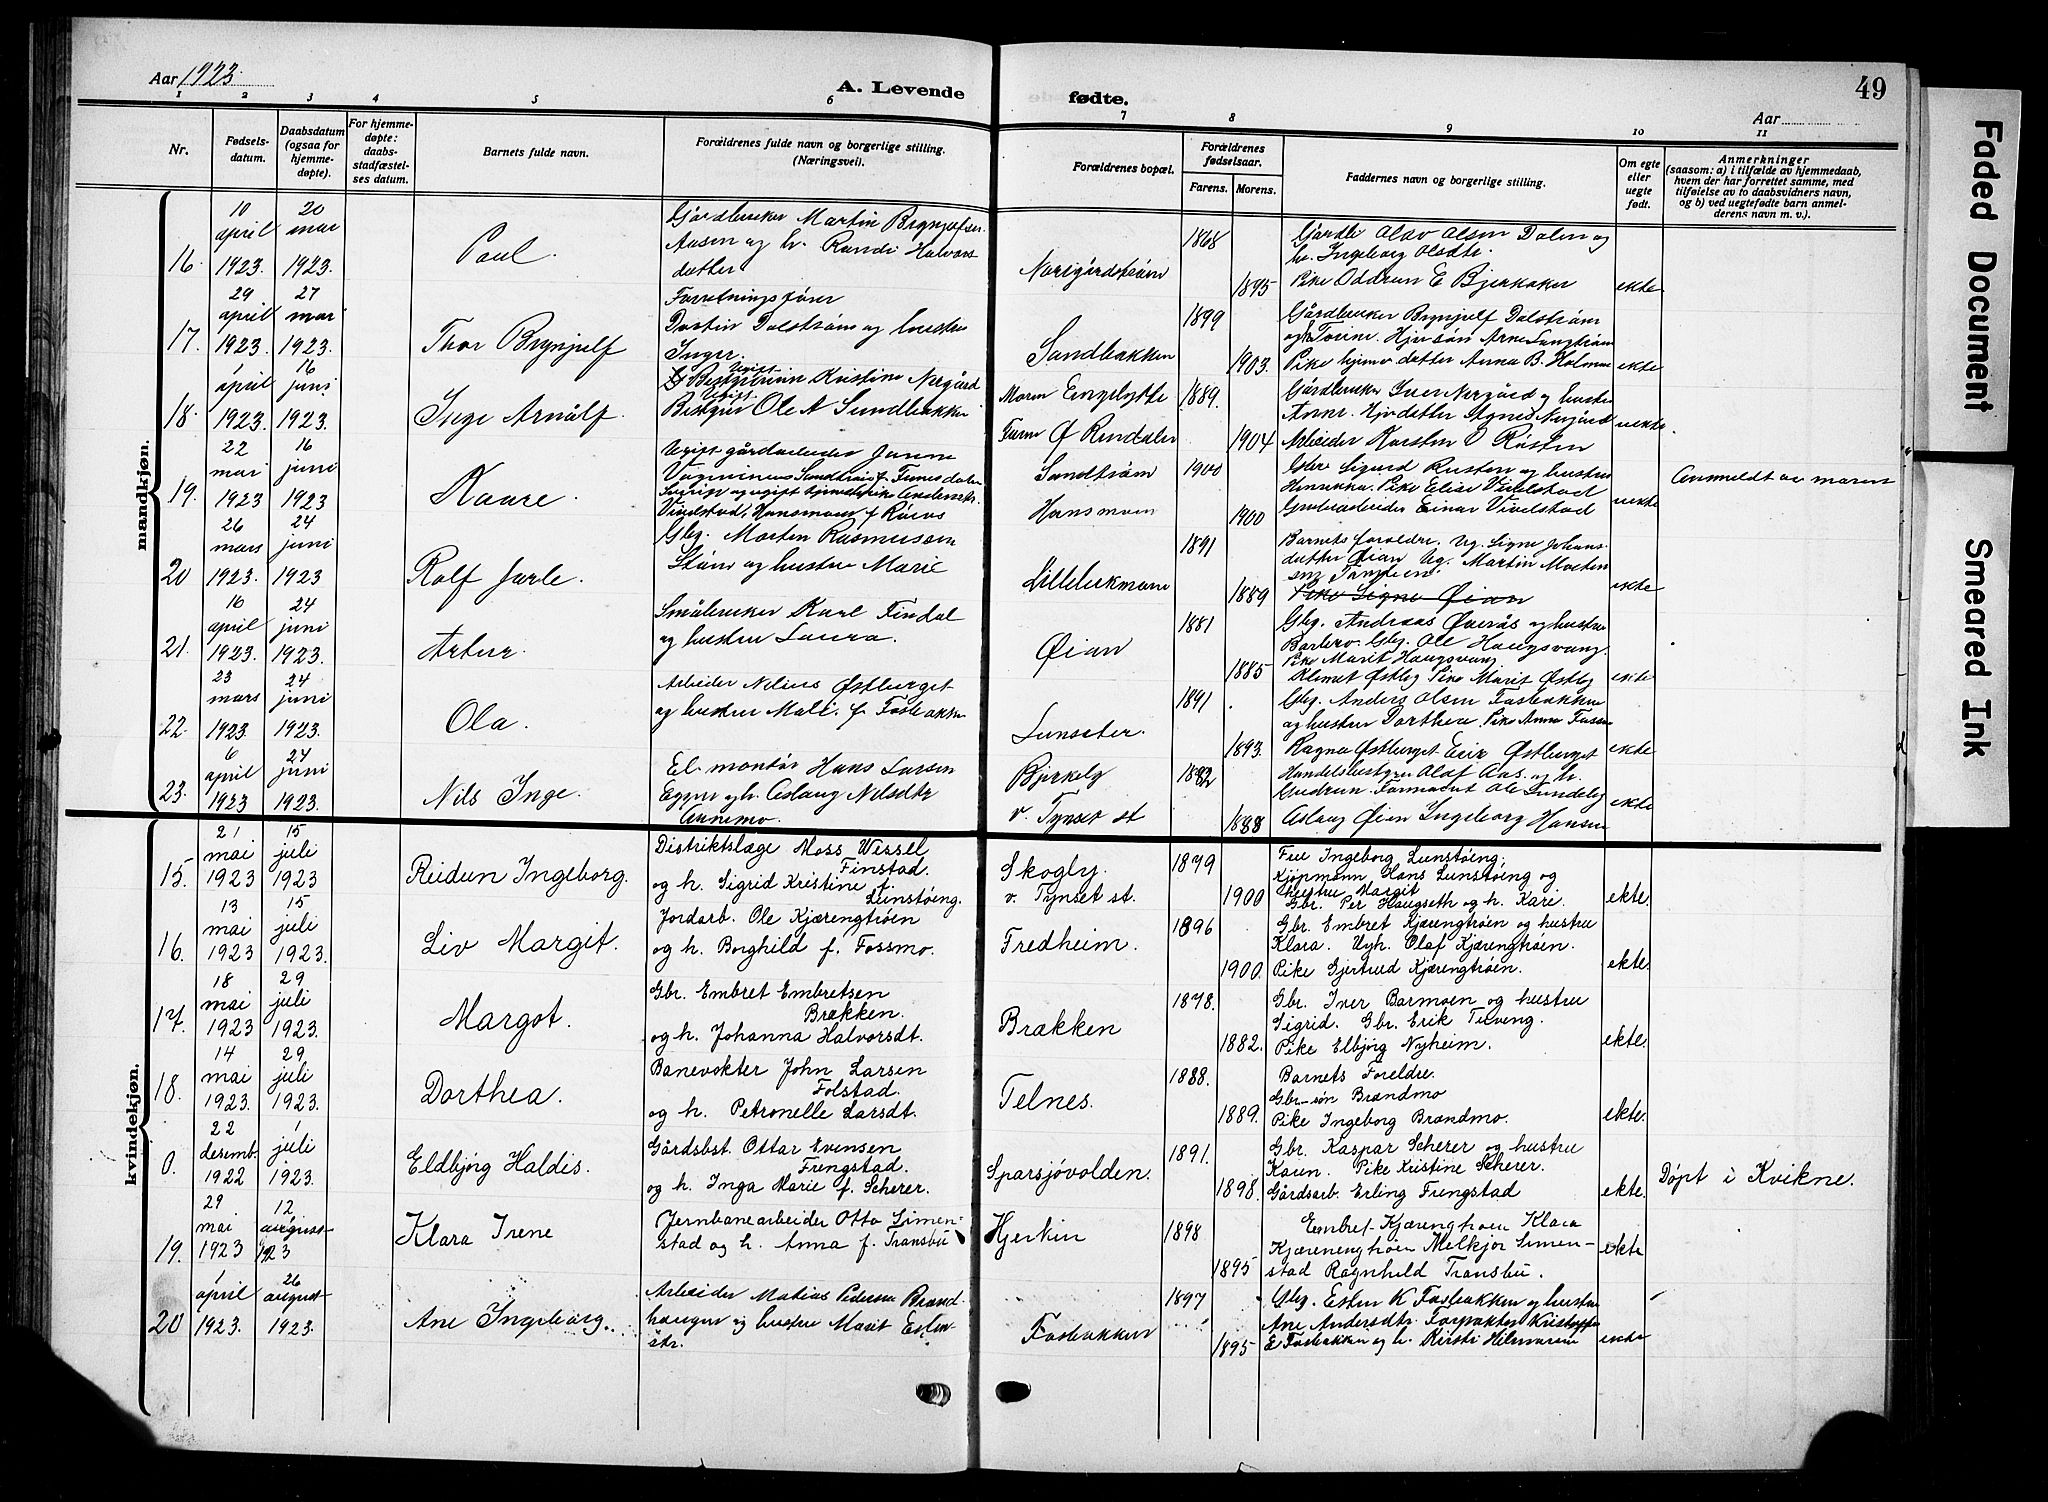 Aar 1923.
A. Levende
fødte.
Aar
49
1 2 3 4 5 6 7 8 9 10 11
Nr.
Fødsels-
datum.
Daabsdatum
(ogsaa for
hjemme-
døpte).
For hjemme-
døpte:
daabs-
stadfæstel-
ses datum.
Barnets fulde navn.
Forældrenes fulde navn og borgerlige stilling.
(Næringsvei).
Forældrenes bopæl.
Forældrenes
fødselsaar.
Farens. Morens.
Faddernes navn og borgerlige stilling.
Om egte
eller
uegte
født.
Anmerkninger
(saasom: a) i tilfælde av hjemmedaab,
hvem der har forrettet samme, med
tilføielse av to daabsvidners navn,
og b) ved uegtefødte barn anmel-
derens navn m. v.).
mandkjøn.
16.
10
april
1923.
20
mai
1923.
Paul.
Gårdbruker Martin Brynjulfsen
Aasen og h. Randi Halvors
datter
Norigårdstrøen
1868
1895
Gårdbr Olav Olsen Dalen og
h. Ingeborg Olsdtr.
Pike Oddrun E Bjerkaker
ekte.
17.
29
april
1923.
27
mai
1923.
Thor Brynjulf
Forretningsfører
Dalstrøm og hustru
Inger.
Sandbakken
1899
1903.
Gårdbruker Brynjulf Dalstrøm
Pike hjemv datter Anna B. Holmen
ekte.
18.
1
april
1923.
16
juni
1923.
Inge Arnålf.
Kristine Nergård
Ole A Sundbakken
Moren Engelykke
Faren Ø Rendalen
1889.
1904
Gårdbruker Iver Nergård og hustru
Anne. Hjdatter Agnes Nergård
Arbeider Karsten O Røsten
uekte.
19.
22
mai
1923
16
juni
1923
Kaare.
Ugift gårdarbeider
Vivelstad, Hansmoen f. Røros
Sandtrøen
Hansmoen
1900
1900
Gbr Sigurd Rusten og hustru
Pike Elise Vivelstad
Grubearbeider Einar Vivelstad
uekte
Anmeldt av moren
20
26
mars
1923.
24
juni
1923
Rolf Jarle.
Gbg. Morten Rasmussen
Støen og hustru Marie
Lillebekmoen
1891
1889
Barnets foreldre. Ug. Signe Johans-
datter Øian Ug. Martin Morten
sen
Pike Signe Øian
ekte
21.
16
april
1923.
24
juni
1923.
Artur.
Småbruker Karl Findal
og hustru Laura.
Øian
1881
1885
Gbg. Andreas Øverås og hustru
Barbro. Gbg. Ole Haugsvang.
Pike Marit Haugsvang
Klemet Østby Pike Marit Østby
ekte
22.
23
mars
1923.
24
juni
1923.
Ola.
Arbeider Nilius Østborget
og hustru Mali f. Fosbakken
Lunseter.
1891
1893.
Gbg. Anders Olsen Fosbakken
og hustru Dorthea. Pike Anna
Ragna Østborget Eeir Østborget
ekte
23.
6
april
1923
24
juni
1923.
Nils Inge.
El. montør Hans Larsen
Egnen og h. Aslaug Nilsdtr
Aunemo.
Bjerkely
v. Tynset st
1882
1888
Handelsbestyrer Olaf Aas. og h.
Gudrun. Formann Ole Lundeby
Aslaug Øian Ingeborg Hansen
ekte
kvindekjøn.
15.
21
mai
1923
15
juli
1923
Reidun Ingeborg.
Distriktslæge Moss Wessel
Finstad.
og h. Sigrid Kristine f.
Lunstøeng.
Skogly.
v. Tynset st.
1879
1900
Fru Ingeborg Lunstøeng,
Kjøpmann Hans Lunstøeng og
hustru Margit
Gbr. Per Haugseth og h. Kari.
ekte.
16.
13
mai
1923
15
juli
1923.
Liv Margit.
Jordarb. Ole Kjærengtrøen
og h. Borghild f. Fossmo.
Fredheim.
1896
1900.
Gbr. Embret Kjærengtrøen og hustru
Klara. Ugh. Olaf Kjærengtrøen.
Pike Gjertrud Kjærengtrøen.
ekte.
17.
18
mai
1923
29
juli
1923.
Margot.
Gbr. Embret Embretsen
Brækken.
og h. Johanna Halvorsdt.
Brækken
1878.
1882.
Gbr. Iver Barmoen og hustru
Sigrid. Gbr. Erik Tuveng.
Pike Elbjørg Nyheim.
ekte.
18.
14
mai
1923.
29
juli
1923.
Dorthea.
Banevokter John Larsen
Folstad.
og h. Petronelle Larsdt.
Telnes.
1888.
1889.
Barnets Foreldre.
Gbr-søn Brændmo
Pike Ingeborg Brændmo.
ekte.
0.
22
desemb.
1922
1
juli
1923.
Eldbjørg Haldis.
Gårdsbst. Ottar Evensen
Frengstad.
og h. Inga Marie f. Scherer.
Sparsjøvolden.
1891.
1898.
Gbr. Kaspar Scherer og hustru
Karen. Pike Kristine Scherer.
Gårdsarb. Erling Frengstad
ekte.
Døpt i Kvikne.
19.
29
mai
1923
12
august
1923
Klara Irene
Jernbanearbeider Otto Simen-
stad og h. Anna f. Transbu
Hjerkin
1898
1895
Embret Kjærengtroen Klara
Kjærengtroen Melkjor Simen-
stad Ragnhild Transbu.
ekte
20
1
april
1923.
26
august
1923.
Ane Ingeborg.
Arbeider Matias Pedersen Brænd-
haugen og hustru Marit Esten
dtr.
Fosbakken
1897
1895
Gbg. Esten K Fosbakken og hustru
Ane Andersdtr. Forpakter Kristoffer
E Fosbakken og h. Kirsti Hilmarsen
ekte
Faded Document
Smeared Ink